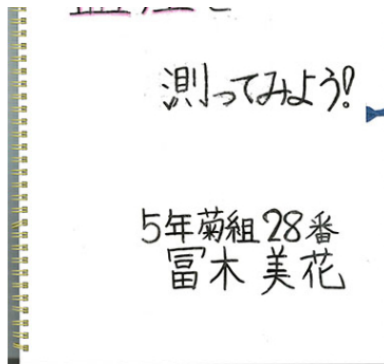 測ってみよう!
5年菊組28番
冨木 美花